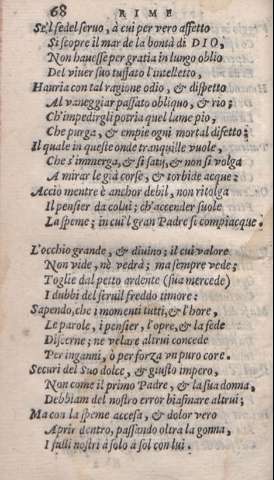 68 RIME
Se'l fedel seruo, à cui per vero affetto
Si scopre il mar de la bontà di DIO,
Non hauesse per gratia in lungo oblio
Del viuer suo tuffato l'intelletto,
Hauria con tal ragione odio, & dispetto
Al vaneggiar passato obliquo, & rio;
Ch'impedirgli potria quel lame pio,
Che purga, & empie ogni mortal difetto;
Il quale in queste onde tranquille vuole,
Che s'immerga, & si satij, & non si volga
A mirar le già corse, & torbide acque:
Acciò mentre è anchor debil, non ritolga
Il pensier da colui; ch'accender suole
La speme; in cui'l gran Padre si compiacque.
L'occhio grande, & diuino; il cui valore
Non vide, nè vedrà; ma sempre vede;
Toglie dal petto ardente (sua mercede)
I dubbi del seruil freddo timore:
Sapendo, che i momenti tutti, & l'hore,
Le parole, i pensier, l'opre, & la fede
Discerne; ne velare altrui concede
Per inganni, ò per forza vn puro core.
Securi del Suo dolce, & giusto impero,
Non come il primo Padre, & la sua donna,
Debbiam del nostro error biasmare altrui;
Ma con la speme accesa, & dolor vero
Aprir dentro, passando oltra la gonna,
I falli nostri à solo à sol con lui.